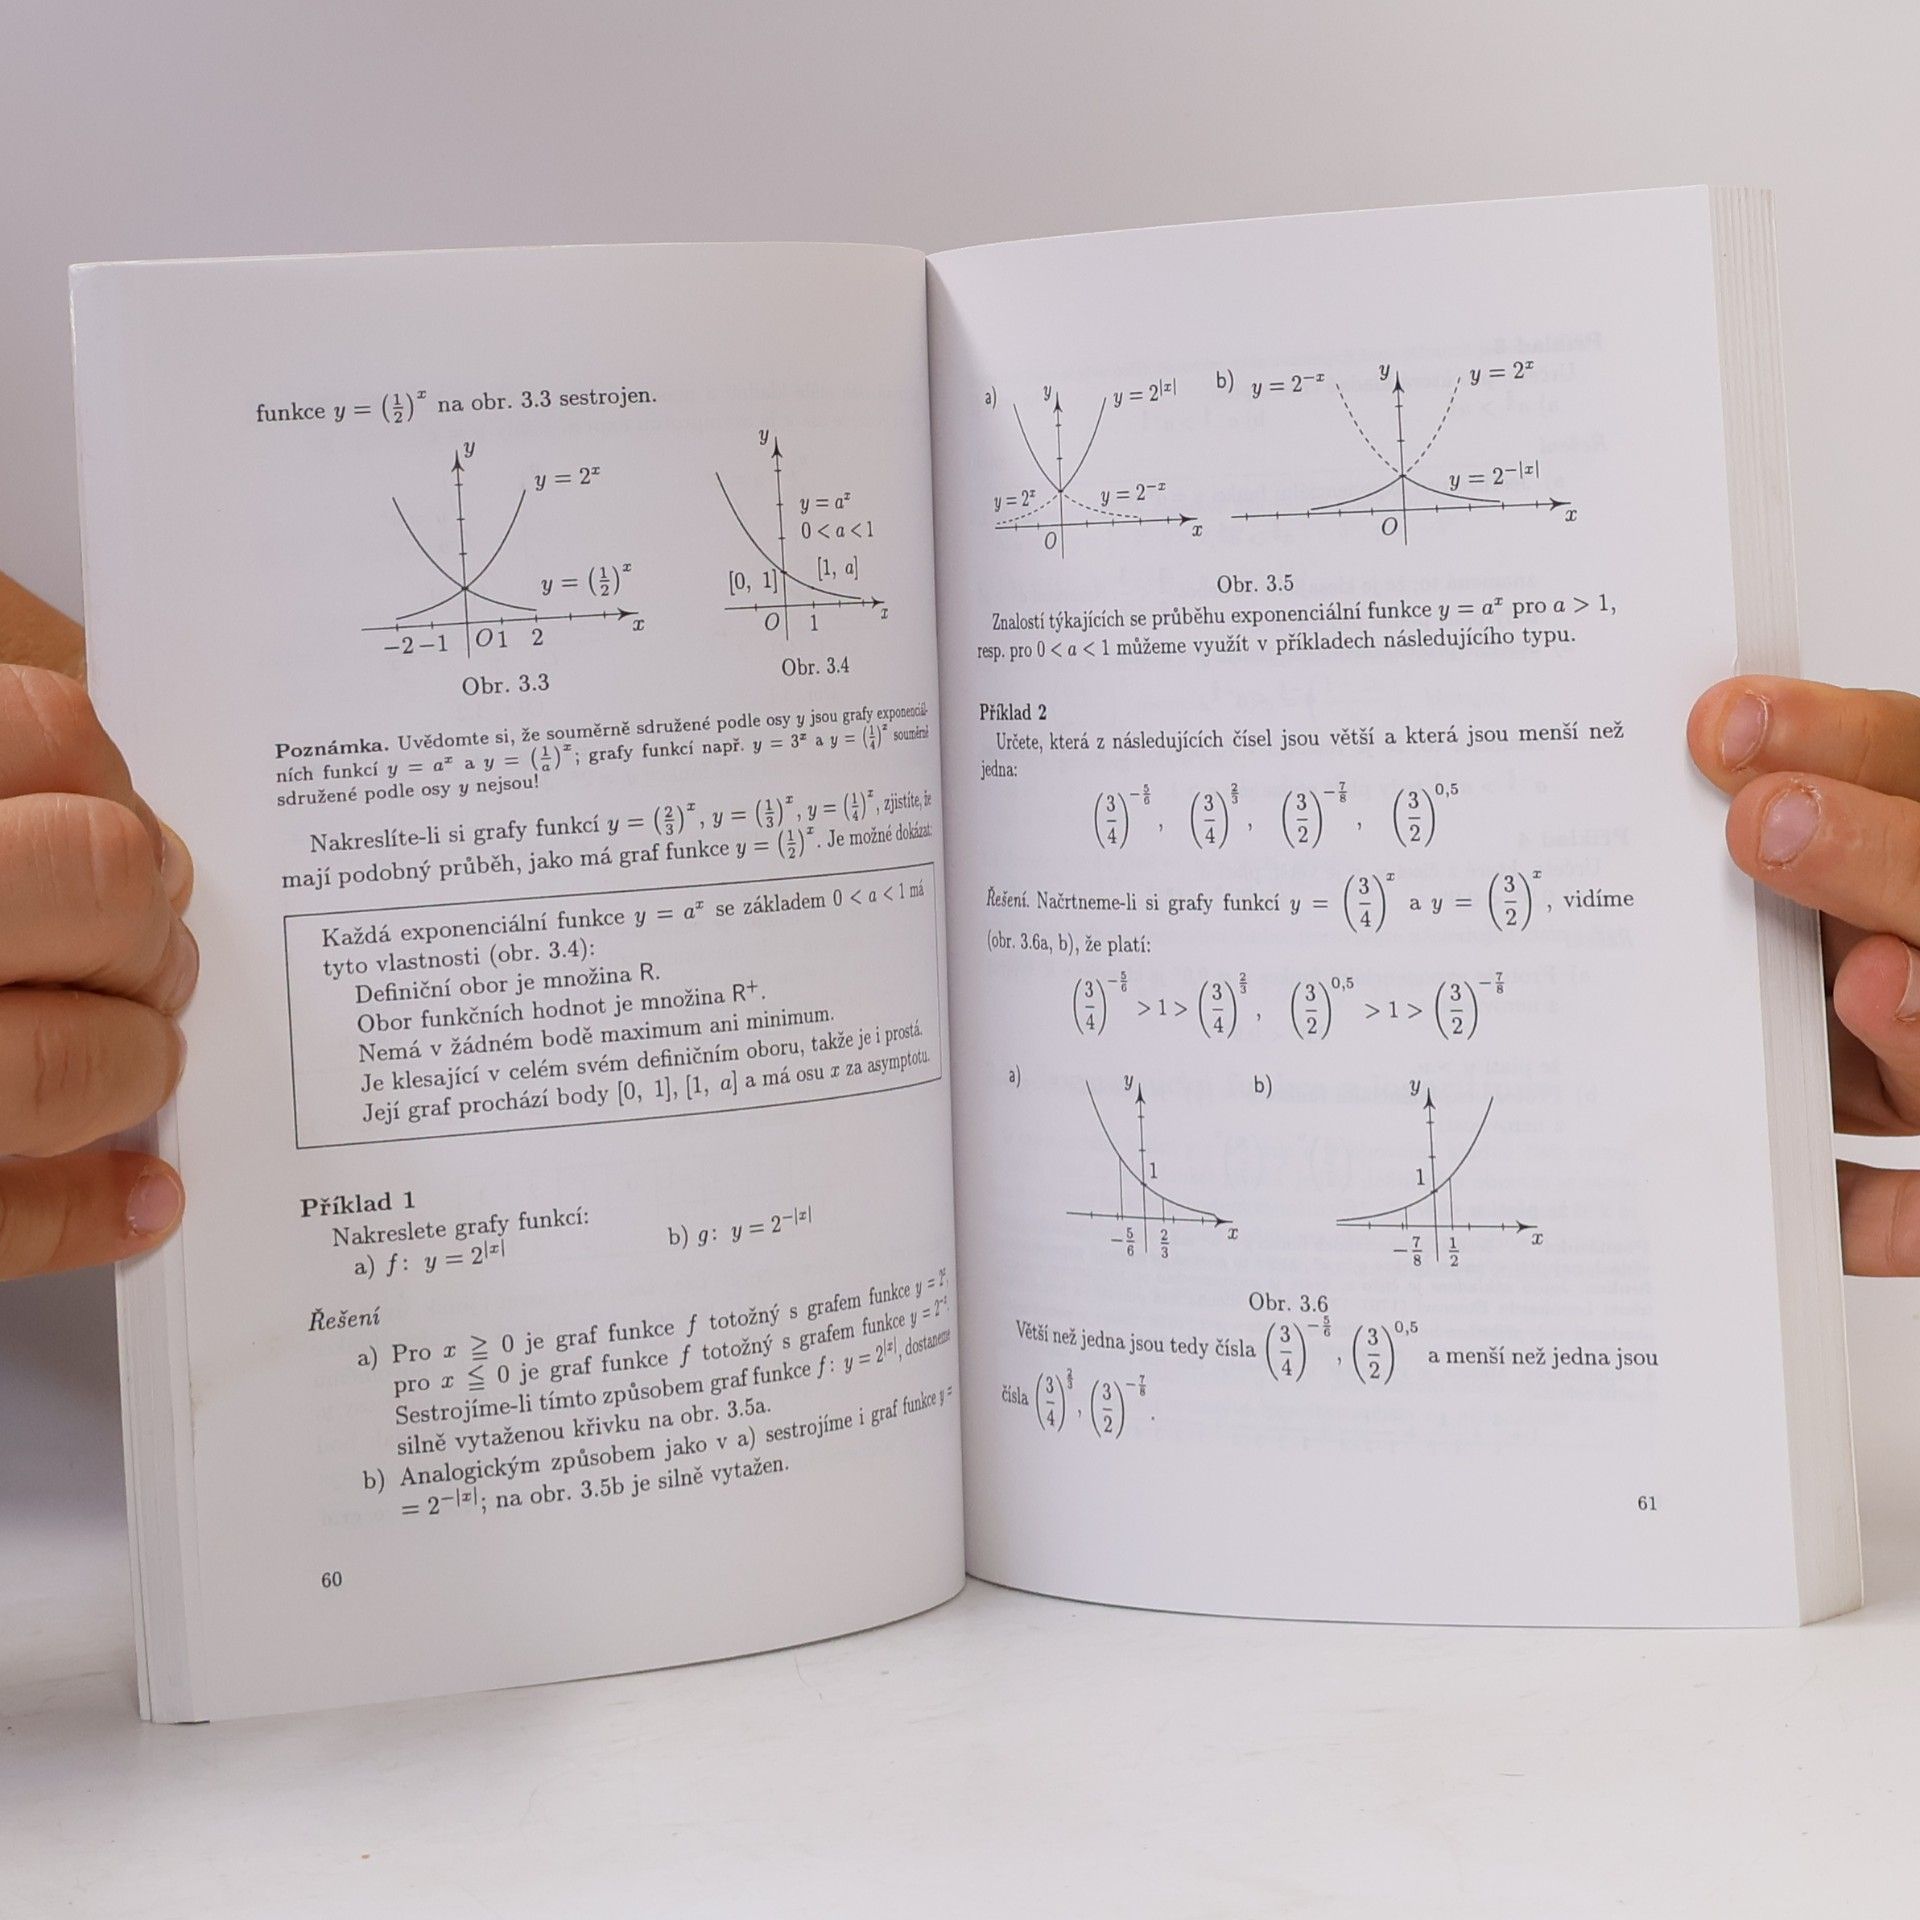 funkce y = (1/2)^x na obr. 3.3 sestrojen.
y
y = 2^x
y = (1/2)^x
−2 −1 O 1 2 x
Obr. 3.3
y
y = a^x
0 < a < 1
[0, 1] [1, a]
O 1 x
Obr. 3.4
Poznámka. Uvědomte si, že souměrně sdružené podle osy y jsou grafy exponenciál-
ních funkcí y = a^x a y = (1/a)^x; grafy funkcí např. y = 3^x a y = (1/4)^x souměrně
sdružené podle osy y nejsou!
Nakreslíte-li si grafy funkcí y = (2/3)^x, y = (1/3)^x, y = (1/4)^x, zjistíte, že
mají podobný průběh, jako má graf funkce y = (1/2)^x. Je možné dokázat:
Každá exponenciální funkce y = a^x se základem 0 < a < 1 má
tyto vlastnosti (obr. 3.4):
Definiční obor je množina R.
Obor funkčních hodnot je množina R^+.
Nemá v žádném bodě maximum ani minimum.
Je klesající v celém svém definičním oboru, takže je i prostá.
Její graf prochází body [0, 1], [1, a] a má osu x za asymptotu.
Příklad 1
Nakreslete grafy funkcí:
a) f: y = 2^|x| b) g: y = 2^−|x|
Řešení
a) Pro x ≧ 0 je graf funkce f totožný s grafem funkce y = 2^x,
pro x ≦ 0 je graf funkce f totožný s grafem funkce y = 2^−x.
Sestrojíme-li tímto způsobem graf funkce f: y = 2^|x|, dostaneme
silně vytaženou křivku na obr. 3.5a.
b) Analogickým způsobem jako v a) sestrojíme i graf funkce y =
= 2^−|x|; na obr. 3.5b je silně vytažen.
60
a) y y = 2^|x|
y = 2^x y = 2^−x
O x
b) y = 2^−x y y = 2^x
y = 2^−|x|
O x
Obr. 3.5
Znalostí týkajících se průběhu exponenciální funkce y = a^x pro a > 1,
resp. pro 0 < a < 1 můžeme využít v příkladech následujícího typu.
Příklad 2
Určete, která z následujících čísel jsou větší a která jsou menší než
jedna:
(3/4)^−5/6, (3/4)^2/3, (3/2)^−7/8, (3/2)^0,5
Řešení. Načrtneme-li si grafy funkcí y = (3/4)^x a y = (3/2)^x, vidíme
(obr. 3.6a, b), že platí:
(3/4)^−5/6 > 1 > (3/4)^2/3, (3/2)^0,5 > 1 > (3/2)^−7/8
a) y
1
−5/6 2/3 x
b) y
1
−7/8 1/2 x
Obr. 3.6
Větší než jedna jsou tedy čísla (3/4)^−5/6, (3/2)^0,5 a menší než jedna jsou
čísla (3/4)^2/3, (3/2)^−7/8.
61